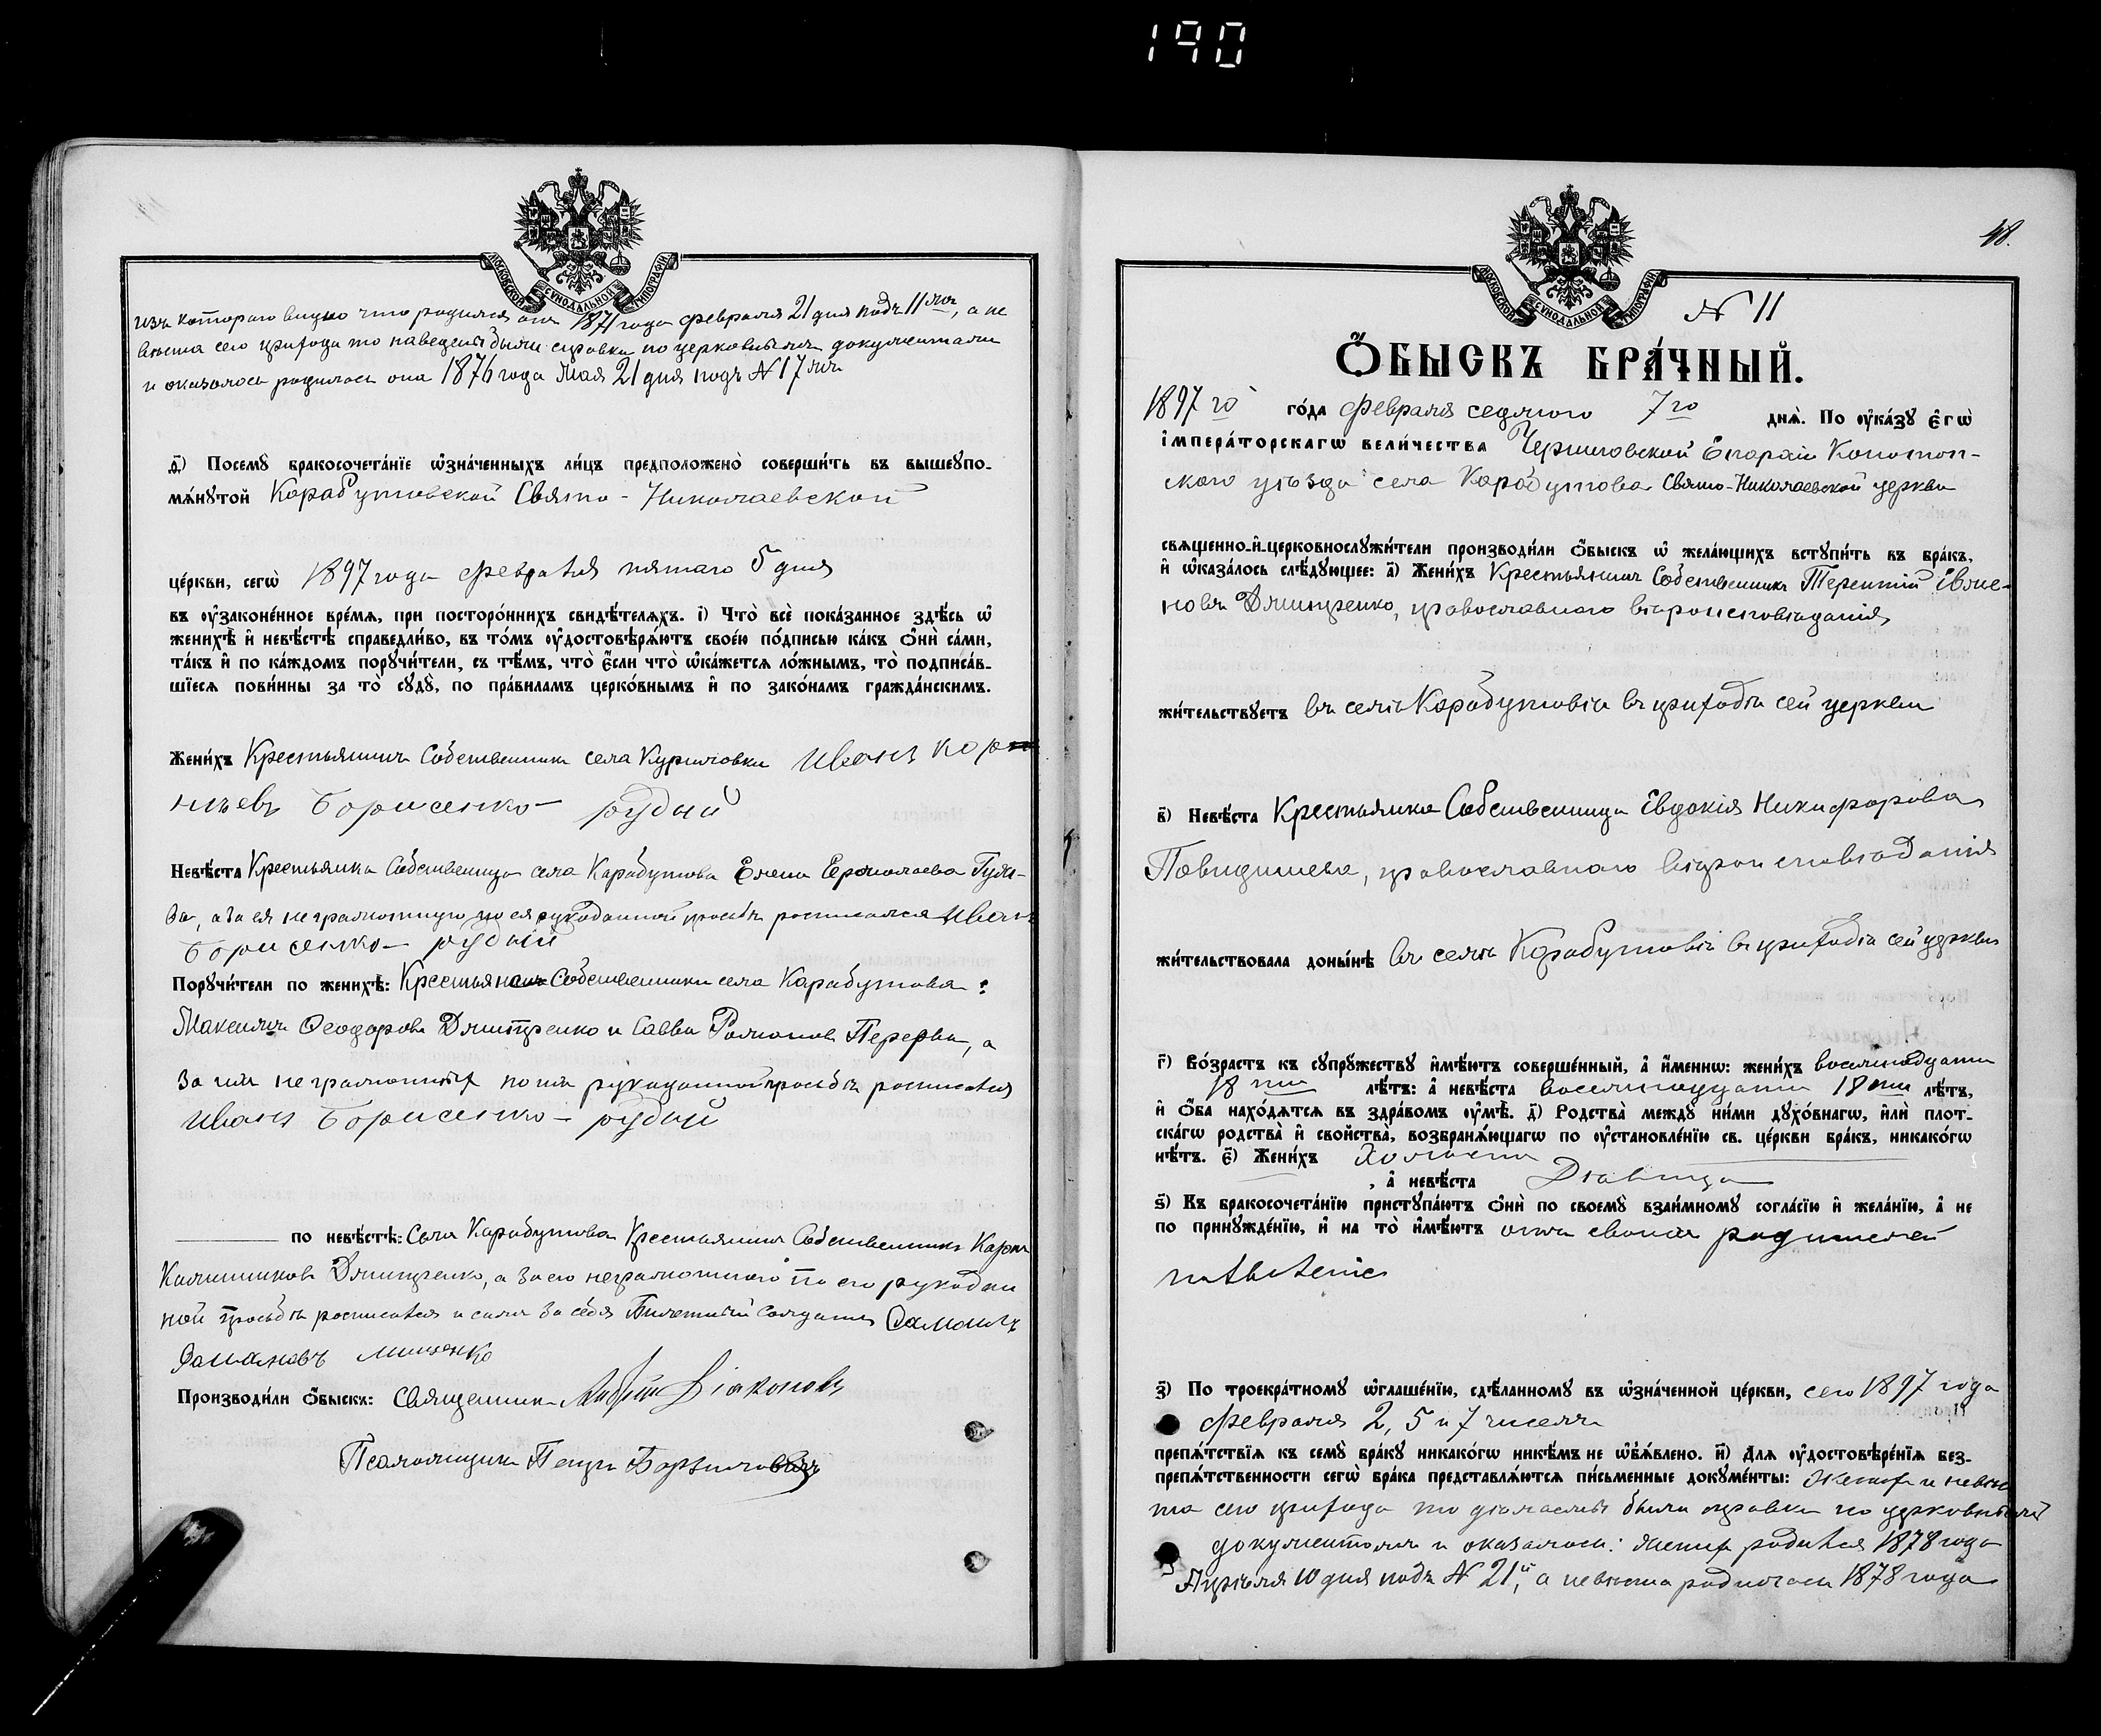 190
МОСКОВСКОЙ СѴНОДАЛЬНОЙ ТИПОГРАФІИ
изъ котораго видно что родился онъ 1871 года февраля 21 дня подъ 11 мъ, а не
вѣста сего прихода то наведены были справки по церковнымъ документамъ
и оказалось родилась она 1876 года Мая 21 дня подъ № 17 мъ
д҃) Посемꙋ̀ бракосочета́нїе ѡ҆зна́ченныхъ ли́цъ предположено̀ соверши́ть въ вышеꙋпо-
мѧ́нꙋтой Карабутовской Свято-Николаевской
це́ркви, сегѡ̀ 1897 года февраля пятаго 5 дня
въ ᲂу҆законе́нное вре́мѧ, при посторо́ннихъ свидѣ́телѧхъ. і҃) Что̀ всѐ пока́занное здѣ́сь ѡ҆
женихѣ̀ и҆ невѣ́стѣ справедли́во, въ то́мъ ᲂу҆достовѣрѧ́ютъ свое́ю по́дписью ка́къ ѻ҆нѝ са́ми,
та́къ и҆ по ка́ждомъ порꙋчи́тели, съ тѣ́мъ, что̀ є҆́сли что̀ ѡ҆ка́жетсѧ ло́жнымъ, то̀ подписа́в-
шїесѧ пови́нны за то̀ сꙋдꙋ̀, по пра́виламъ церко́внымъ и҆ по зако́намъ гражда́нскимъ.
Жени́хъ Крестьянинъ Собственникъ села Куриловки Иванъ Кор
нѣевъ Борисенко-рудый
Невѣ́ста Крестьянка Собственница села Карабутова Елена Ермолаева Гузе-
ва, а за ея неграмотную по ея рукоданной просьбѣ росписался Иванъ
Борисенко-рудый
Порꙋчи́тели по женихѣ̀: Крестьяне Собственники села Карабутова:
Максимъ Ѳеодоровъ Дмитренко и Савва Романовъ Перерва, а
за ихъ неграмотныхъ по ихъ рукоданной просьбѣ росписался
Иванъ Борисенко-рудый
по невѣ́стѣ: Села Карабутова Крестьянинъ Собственникъ Карпъ
Калинниковъ Дмитренко, а за его неграмотнаго по его рукодан
ной просьбѣ росписался и самъ за себя Билетный Солдатъ Самоилъ
Романовъ Мищенко
Производи́ли ѻ҆́быскъ: Священникъ Андрей Діаконовъ
Псаломщикъ Петръ Борзиловичъ
48.
МОСКОВСКОЙ СѴНОДАЛЬНОЙ ТИПОГРАФІИ
№ 11
Ѻ҆́БЫСКЪ БРА́ЧНЫЙ.
1897 го го́да февраля седмого 7 го днѧ̀. По ᲂу҆ка́зꙋ є҆гѡ̀
і҆мпера́торскагѡ вели́чества Черниговской Епархіи Конотоп-
скаго уѣзда села Карабутова Свято-Николаевской церкви
свѧщенно-и҆-церковнослꙋжи́тели производи́ли ѻ҆́быскъ ѡ҆ жела́ющихъ встꙋпи́ть въ бра́къ,
и҆ ѡ҆каза́лось слѣ́дꙋющее: а҃) Жени́хъ Крестьянинъ Собственникъ Терентій Івме-
новъ Дмитренко, православнаго вѣроисповѣданія,
жи́тельствꙋетъ въ селѣ Карабутовѣ въ приходѣ сей церкви
в҃) Невѣ́ста Крестьянка Собственница Евдокія Никифорова
Повидишева, православнаго вѣроисповѣданія
жи́тельствовала доны́нѣ въ селѣ Карабутовѣ въ приходѣ сей церкви
г҃) Во́зрастъ къ сꙋпрꙋ́жествꙋ и҆мѣ́ютъ соверше́нный, а҆ и҆́меннѡ: жени́хъ восемнадцати
18 ти лѣ́тъ: а҆ невѣ́ста восемнадцати 18 ти лѣ́тъ,
и҆ ѻ҆́ба нахо́дѧтсѧ въ здра́вомъ ᲂу҆мѣ̀. д҃) Родства̀ междꙋ ни́ми дꙋхо́внагѡ, и҆лѝ плот-
ска́гѡ родства̀ и҆ свойства̀, возбранѧ́ющагѡ по ᲂу҆становле́нїю св. це́ркви бра́къ, никако́гѡ
нѣ́тъ. є҃) Жени́хъ Холостъ
, а҆ невѣ́ста Дѣвица
ѕ҃) Къ бракосочета́нїю пристꙋпа́ютъ ѻ҆нѝ по своемꙋ̀ взаи́мномꙋ согла́сїю и҆ жела́нїю, а҆ не
по принꙋжде́нїю, и҆ на то̀ и҆мѣ́ютъ отъ своихъ родителей
позволеніе
з҃) По троекра́тномꙋ ѡ҆глаше́нїю, сдѣ́ланномꙋ въ ѡ҆зна́ченной це́ркви, сего 1897 года
февраля 2, 5 и 7 числъ
препѧ́тствїѧ къ семꙋ̀ бра́кꙋ никако́гѡ никѣ́мъ не ѡ҆б̾ѧ́влено. и҃) Длѧ ᲂу҆достовѣре́нїѧ без-
препѧ́тственности сегѡ̀ бра́ка представлѧ́ютсѧ пи́сьменные докꙋме́нты: Женихъ и невѣс
та сего прихода то дѣлаемы были справки по церковнымъ
документамъ и оказалось: женихъ родился 1878 года
Апрѣля 10 дня подъ № 21 й, а невѣста родилась 1878 года